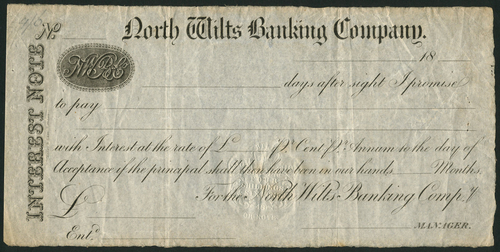 No
North Wilts Banking Company.
18
INTEREST NOTE
days after sight I promise
to pay
with Interest at the rate of £ P. Cent P. Annum to the day of
Acceptance if the principal shall then have been in our hands Months.
For the North Wilts Banking Compy.
£
Entd.
MANAGER.